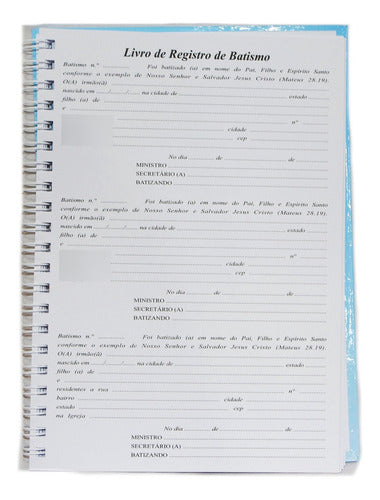 Livro de Registro de Batismo
Batismo n.º ............ Foi batizado (a) em nome do Pai, Filho e Espírito Santo
conforme o exemplo de Nosso Senhor e Salvador Jesus Cristo (Mateus 28.19).
O(A) irmão(ã)
nascido em ....../....../...... na cidade de ............ estado ............
filho (a) de
e
nº
cidade
cep
No dia ............ de ............ de ............
MINISTRO
SECRETÁRIO (A)
BATIZANDO
Batismo n.º ............ Foi batizado (a) em nome do Pai, Filho e Espírito Santo
conforme o exemplo de Nosso Senhor e Salvador Jesus Cristo (Mateus 28.19).
O(A) irmão(ã)
nascido em ....../....../...... na cidade de ............ estado ............
filho (a) de
e
nº
cidade
cep
No dia ............ de ............ de ............
MINISTRO
SECRETÁRIO (A)
BATIZANDO
Batismo n.º ............ Foi batizado (a) em nome do Pai, Filho e Espírito Santo
conforme o exemplo de Nosso Senhor e Salvador Jesus Cristo (Mateus 28.19).
O(A) irmão(ã)
nascido em ....../....../...... na cidade de ............ estado ............
filho (a) de
e
residentes a rua ............ nº ............
bairro ............ cidade ............
estado ............ cep ............
na Igreja
No dia ............ de ............ de ............
MINISTRO
SECRETÁRIO (A)
BATIZANDO